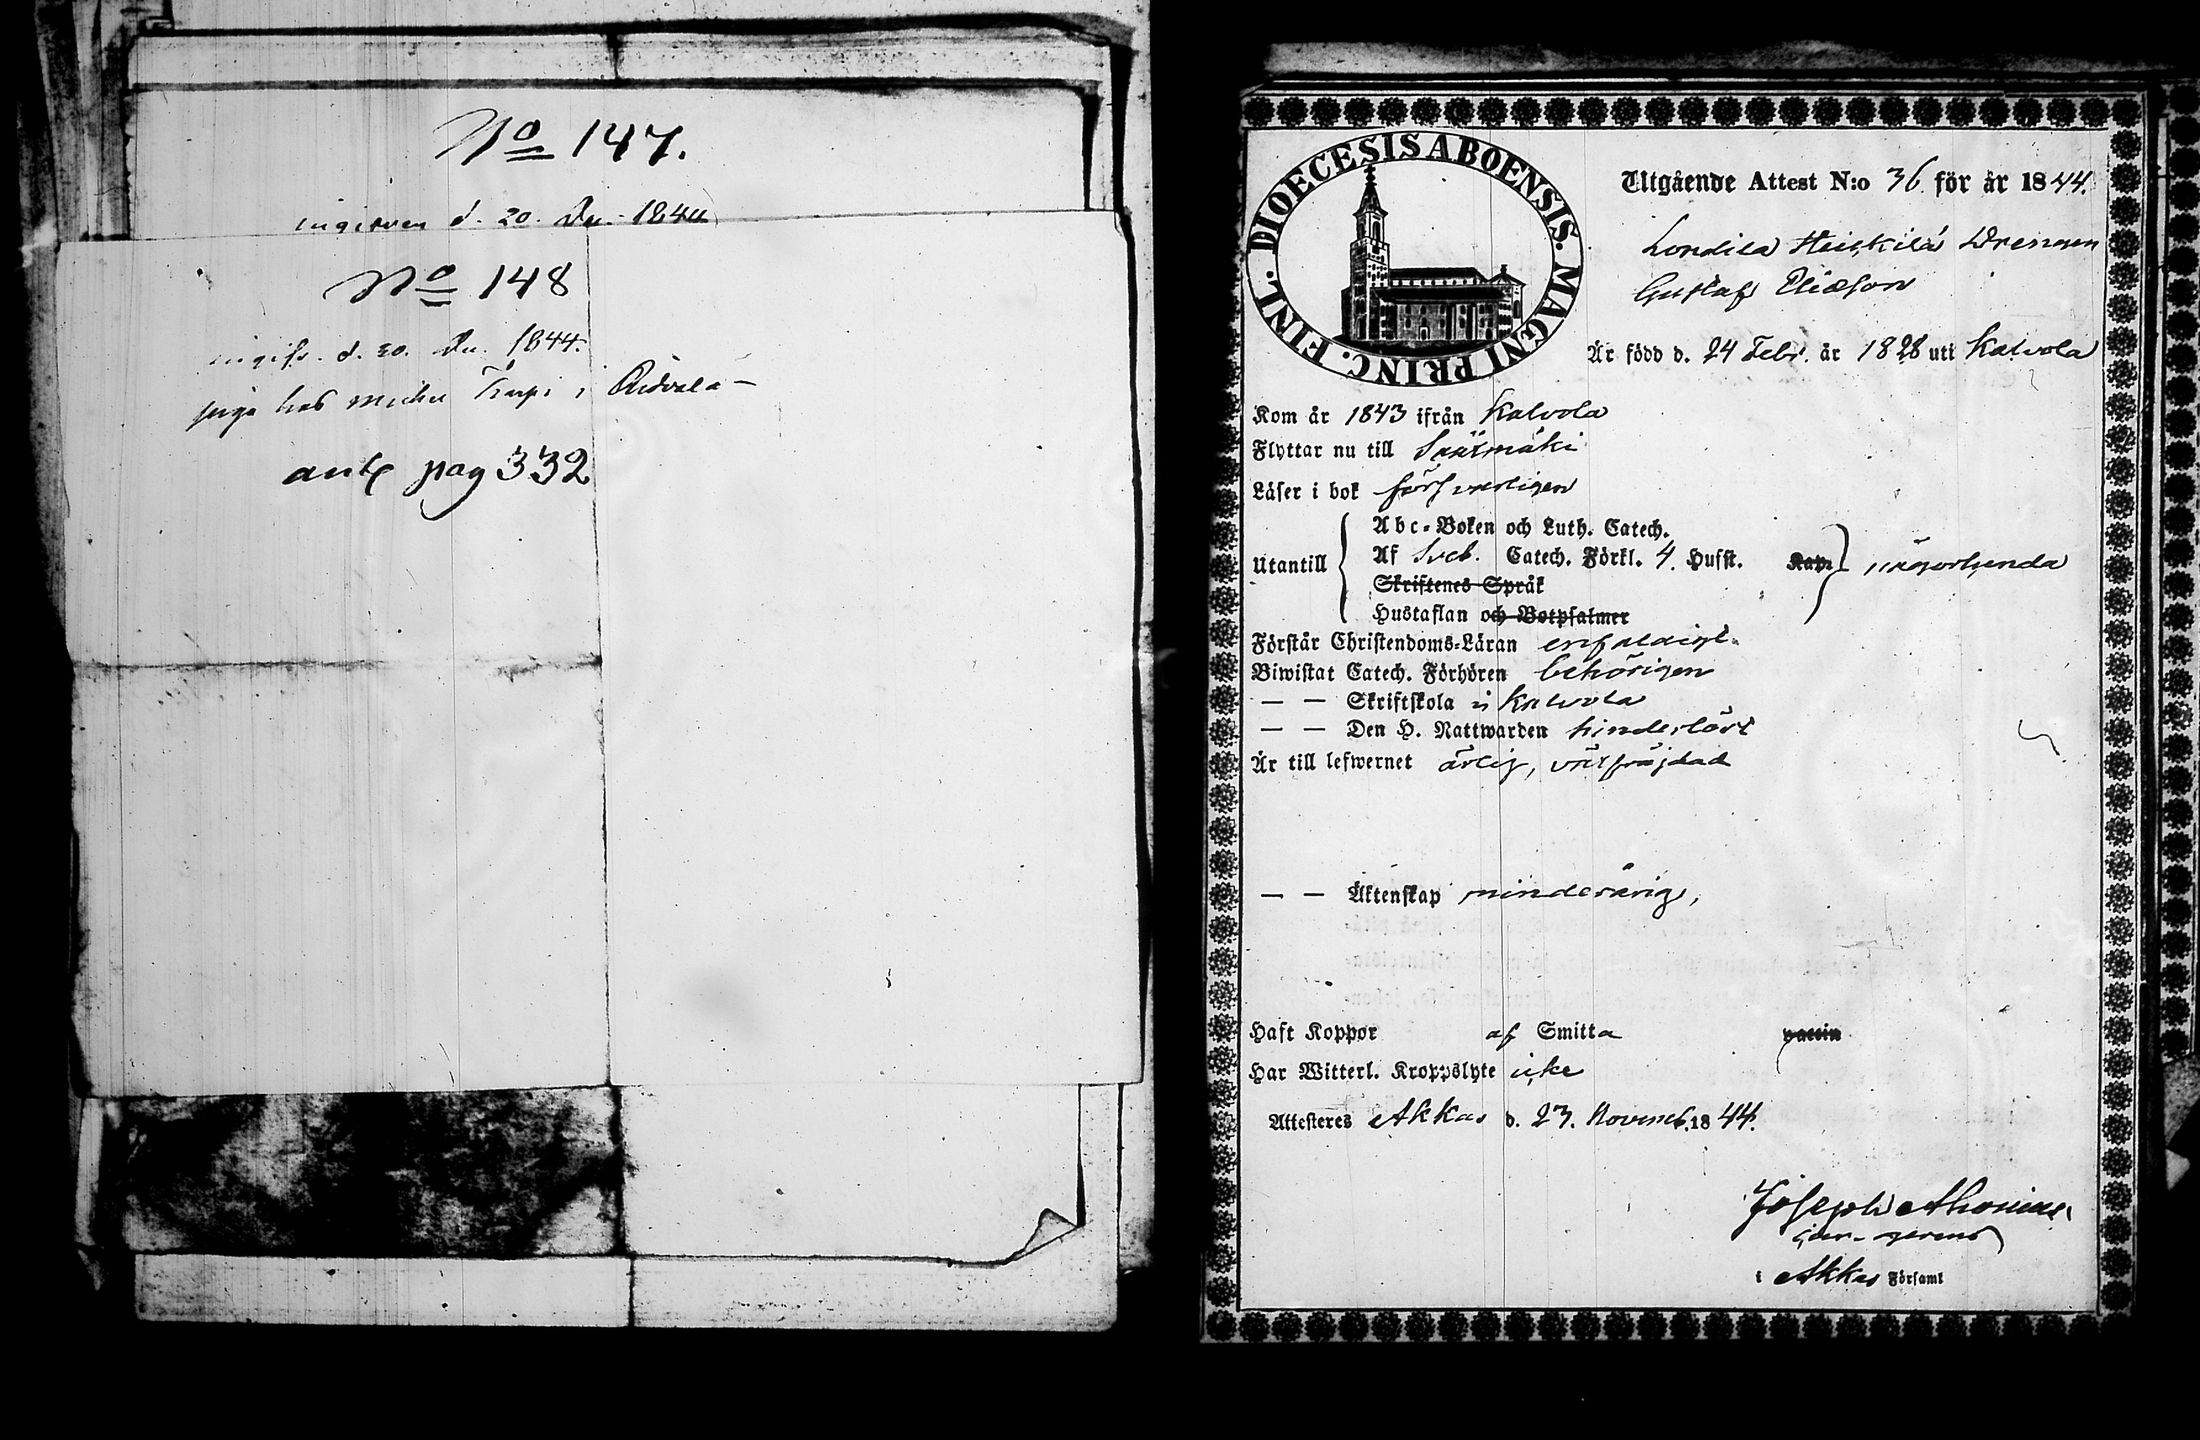 No 147.
ingifven d. 20. Dec. 1844
No 148
ingifv. d. 20. Dec. 1844.
piga hos i Ridvala –
ant pag 332
DIOECESIS ABOENSIS. MAGNI PRINC. FINL.
Utgående Attest N:o 36. för år 1844.
Londila Heickilä Drengen
Gustaf Eliæson
Är född d. 24 Febr. år 1828 uti Kalvola
Kom år 1843 ifrån Kalvola
Flyttar nu till Sääxmäki
Läser i bok försvarligen
Utantill
Abc-Boken och Luth. Catech.
Af Sveb. Catech. Förkl. 4. Husst. Kap. någorlunda
Skriftenes Språk
Hustaflan och Botpsalmer
Förstår Christendoms-Läran enfaldigt.
Biwistat Catech. Förhören behörigen
— — Skriftskola i Kalvola
— — Den H. Nattwarden hinderlöst
Är till lefwernet ärlig, välfräjdad
— — Äktenskap minderårig,
Haft Koppor af Smitta vaccin
Har Witterl. Kroppslyte icke
Attesteres Akkas d. 23. Novemb. 1844.
Joseph
i Akkas Församl